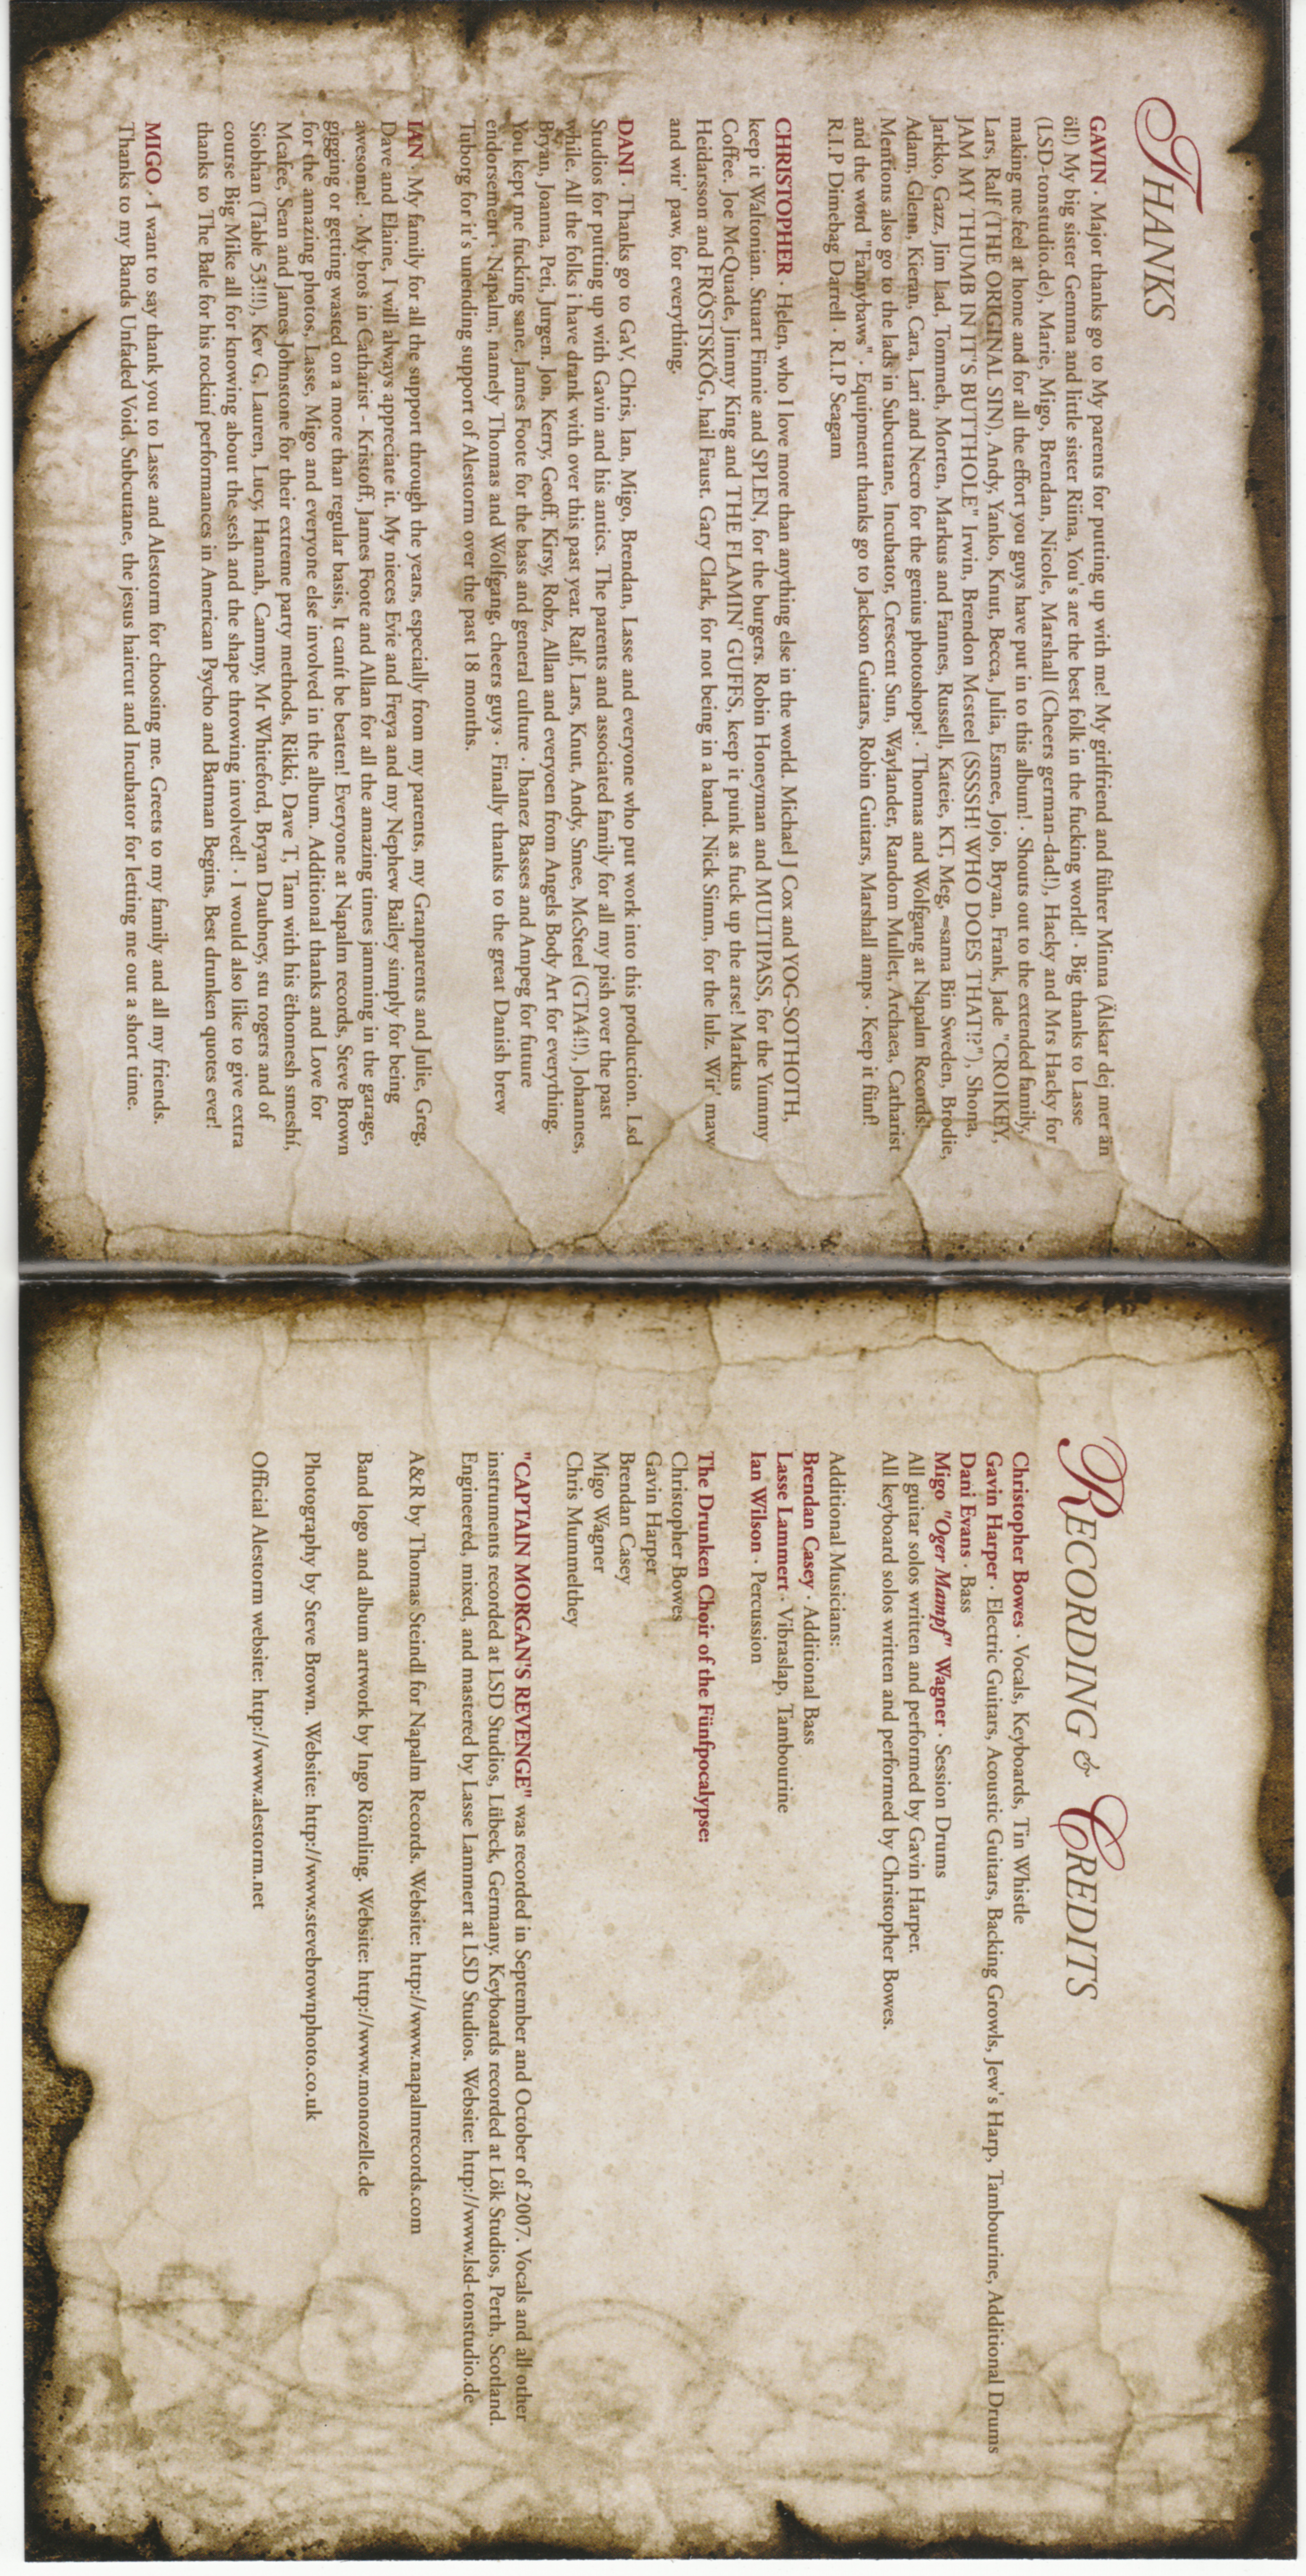 THANKS
GAVIN · Major thanks go to My parents for putting up with me! My girlfriend and führer Minna (Älskar dej mer än
öl!) My big sister Gemma and little sister Riina, You's are the best folk in the fucking world! · Big thanks to Lasse
(LSD-tonstudio.de), Marie, Migo, Brendan, Nicole, Marshall (Cheers german-dad!), Hacky and Mrs Hacky for
making me feel at home and for all the effort you guys have put in to this album! · Shouts out to the extended family,
Lars, Ralf (THE ORIGINAL SIN), Andy, Yanko, Knut, Becca, Julia, Esmee, Jojo, Bryan, Frank, Jade "CROIKEY,
JAM MY THUMB IN IT'S BUTTHOLE" Irwin, Brendon Mcsteel (SSSSH! WHO DOES THAT!?"), Shona,
Jarkko, Gazz, Jim Lad, Tommeh, Morten, Markus and Fannes, Russell, Kateie, KT, Meg, ≈sama Bin Sweden, Brodie,
Adam, Glenn, Kieran, Cara, Lari and Necro for the genius photoshops! · Thomas and Wolfgang at Napalm Records!
Mentions also go to the lads in Subcutane, Incubator, Crescent Sun, Waylander, Random Mullet, Archaea, Catharist
and the word "Fannybaws" · Equipment thanks go to Jackson Guitars, Robin Guitars, Marshall amps · Keep it fünf!
R.I.P Dimebag Darrell · R.I.P Seagam
CHRISTOPHER · Helen, who I love more than anything else in the world. Michael J Cox and YOG-SOTHOTH,
keep it Waltonian. Stuart Finnie and SPLEN, for the burgers. Robin Honeyman and MULTIPASS, for the Yummy
Coffee. Joe McQuade, Jimmy King and THE FLAMIN' GUFFS, keep it punk as fuck up the arse! Markus
Heidarsson and FRÖSTSKÖG, hail Faust. Gary Clark, for not being in a band. Nick Simm, for the lulz. Wir' maw
and wir' paw, for everything.
DANI · Thanks go to GaV, Chris, Ian, Migo, Brendan, Lasse and everyone who put work into this production. Lsd
Studios for putting up with Gavin and his antics. The parents and associated family for all my pish over the past
while. All the folks i have drank with over this past year. Ralf, Lars, Knut, Andy, Smee, McSteel (GTA4!!), Johannes,
Bryan, Joanna, Peti, Jurgen. Jon, Kerry, Geoff, Kirsy, Robz, Allan and everyoen from Angels Body Art for everything.
You kept me fucking sane. James Foote for the bass and general culture · Ibanez Basses and Ampeg for future
endorsement · Napalm, namely Thomas and Wolfgang, cheers guys · Finally thanks to the great Danish brew
Tuborg for it's unending support of Alestorm over the past 18 months.
IAN · My family for all the support through the years, especially from my parents, my Granparents and Julie, Greg,
Dave and Elaine, I will always appreciate it. My nieces Evie and Freya and my Nephew Bailey simply for being
awesome! · My bros in Catharist - Kristoff, James Foote and Allan for all the amazing times jamming in the garage,
gigging or getting wasted on a more than regular basis, It canít be beaten! Everyone at Napalm records, Steve Brown
for the amazing photos, Lasse, Migo and everyone else involved in the album. Additional thanks and Love for
Mcafee, Sean and James Johnstone for their extreme party methods, Rikki, Dave T, Tam with his ëthomesh smeshí,
Siobhan (Table 53!!!), Kev G, Lauren, Lucy, Hannah, Cammy, Mr Whiteford, Bryan Daubney, stu rogers and of
course Big Mike all for knowing about the sesh and the shape throwing involved! · I would also like to give extra
thanks to The Bale for his rockiní performances in American Psycho and Batman Begins, Best drunken quotes ever!
MIGO · I want to say thank you to Lasse and Alestorm for choosing me. Greets to my family and all my friends.
Thanks to my Bands Unfaded Void, Subcutane, the jesus haircut and Incubator for letting me out a short time.
RECORDING & CREDITS
Christopher Bowes · Vocals, Keyboards, Tin Whistle
Gavin Harper · Electric Guitars, Acoustic Guitars, Backing Growls, Jew's Harp, Tambourine, Additional Drums
Dani Evans · Bass
Migo "Oger Mampf" Wagner · Session Drums
All guitar solos written and performed by Gavin Harper.
All keyboard solos written and performed by Christopher Bowes.
Additional Musicians:
Brendan Casey · Additional Bass
Lasse Lammert · Vibraslap, Tambourine
Ian Wilson · Percussion
The Drunken Choir of the Fünfpocalypse:
Christopher Bowes
Gavin Harper
Brendan Casey
Migo Wagner
Chris Mummelthey
"CAPTAIN MORGAN'S REVENGE" was recorded in September and October of 2007. Vocals and all other
instruments recorded at LSD Studios, Lübeck, Germany. Keyboards recorded at Lök Studios, Perth, Scotland.
Engineered, mixed, and mastered by Lasse Lammert at LSD Studios. Website: http://www.lsd-tonstudio.de
A&R by Thomas Steindl for Napalm Records. Website: http://www.napalmrecords.com
Band logo and album artwork by Ingo Römling. Website: http://www.monozelle.de
Photography by Steve Brown. Website: http://www.stevebrownphoto.co.uk
Official Alestorm website: http://www.alestorm.net